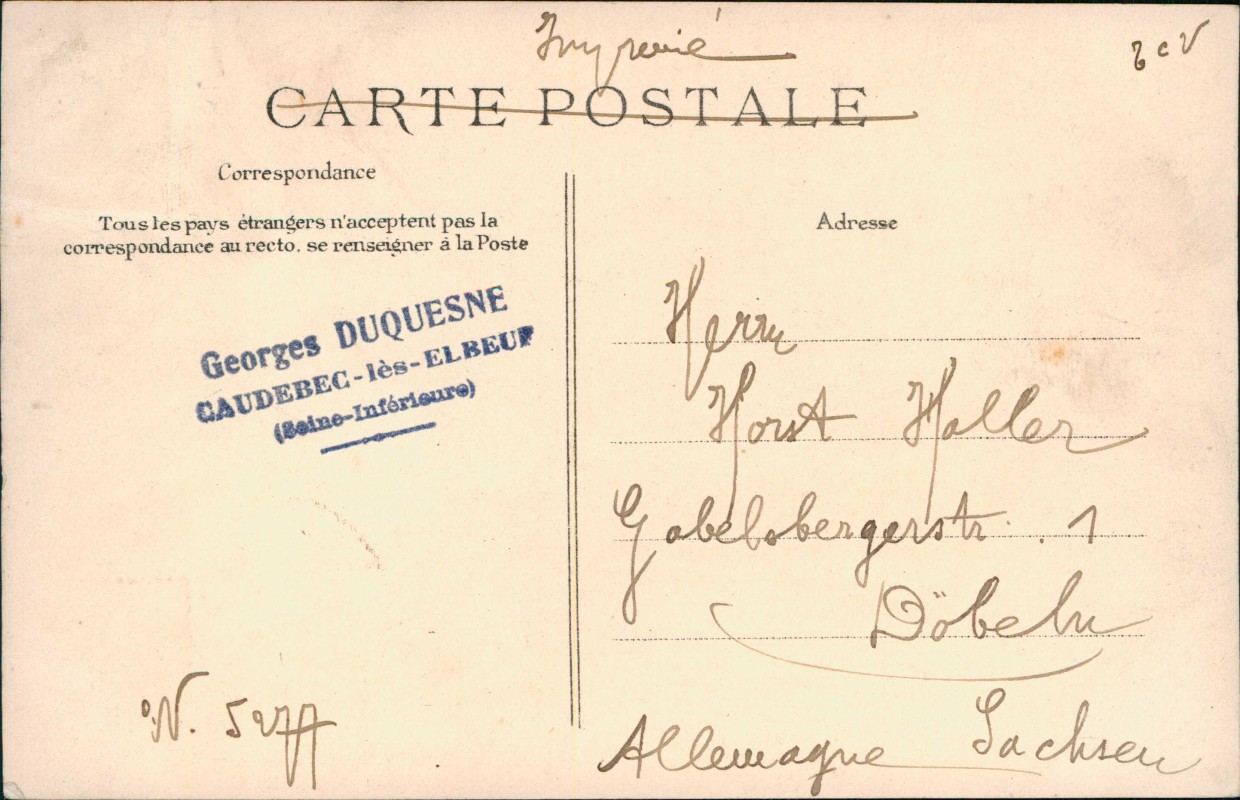 Imprimé
T c V
CARTE POSTALE
Correspondance
Tous les pays étrangers n'acceptent pas la
correspondance au recto. se renseigner à la Poste
Georges DUQUESNE
CAUDEBEC-lès-ELBEUF
(Seine-Inférieure)
N. 5277
Adresse
Herrn
Horst Haller
Gabelsbergerstr. 1
Döbeln
Sachsen
Allemagne